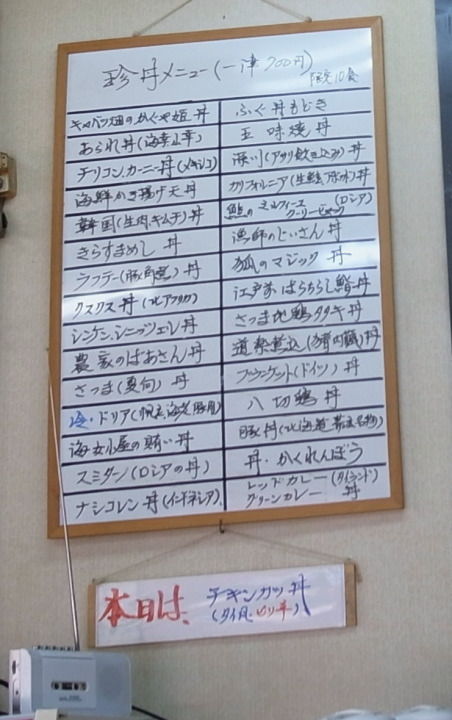 珍丼メニュー(一律700円)
限定10食
キャベツ畑のかぐや姫 丼
あられ丼(海幸山幸)
チリコン.カーニ丼(メキシコ)
海鮮かき揚げ天丼
韓国(生肉.キムチ)丼
きらすまめし 丼
ラフテー(豚角煮)丼
クスクス 丼(北アフリカ)
シンケン.シニッツェル丼
農家のばあさん丼
さつま(夏向) 丼
冷・ドリア
海女小屋の賄い丼
スミターノ(ロシアの丼)
ナシゴレン丼(インドネシア)
ふぐ丼もどき
五味焼丼
深川(アサリ炊き込み)丼
カリフォルニア(生鮭.アボカド)丼
鮭のミルフィーユ
クーリービャック
(ロシア)
漁師のじいさん丼
狐のマジック 丼
江戸前ばらちらし鮨丼
さつま地鶏タタキ丼
道楽煮込(豚内臓)丼
(ドイツ)丼
八切鶏丼
豚丼(北海道帯広名物)
丼・かくれんぼう
レッドカレー
グリーンカレー
(タイランド)
丼
本日は、
チキンカツ丼
(タイ風・ピリ辛)